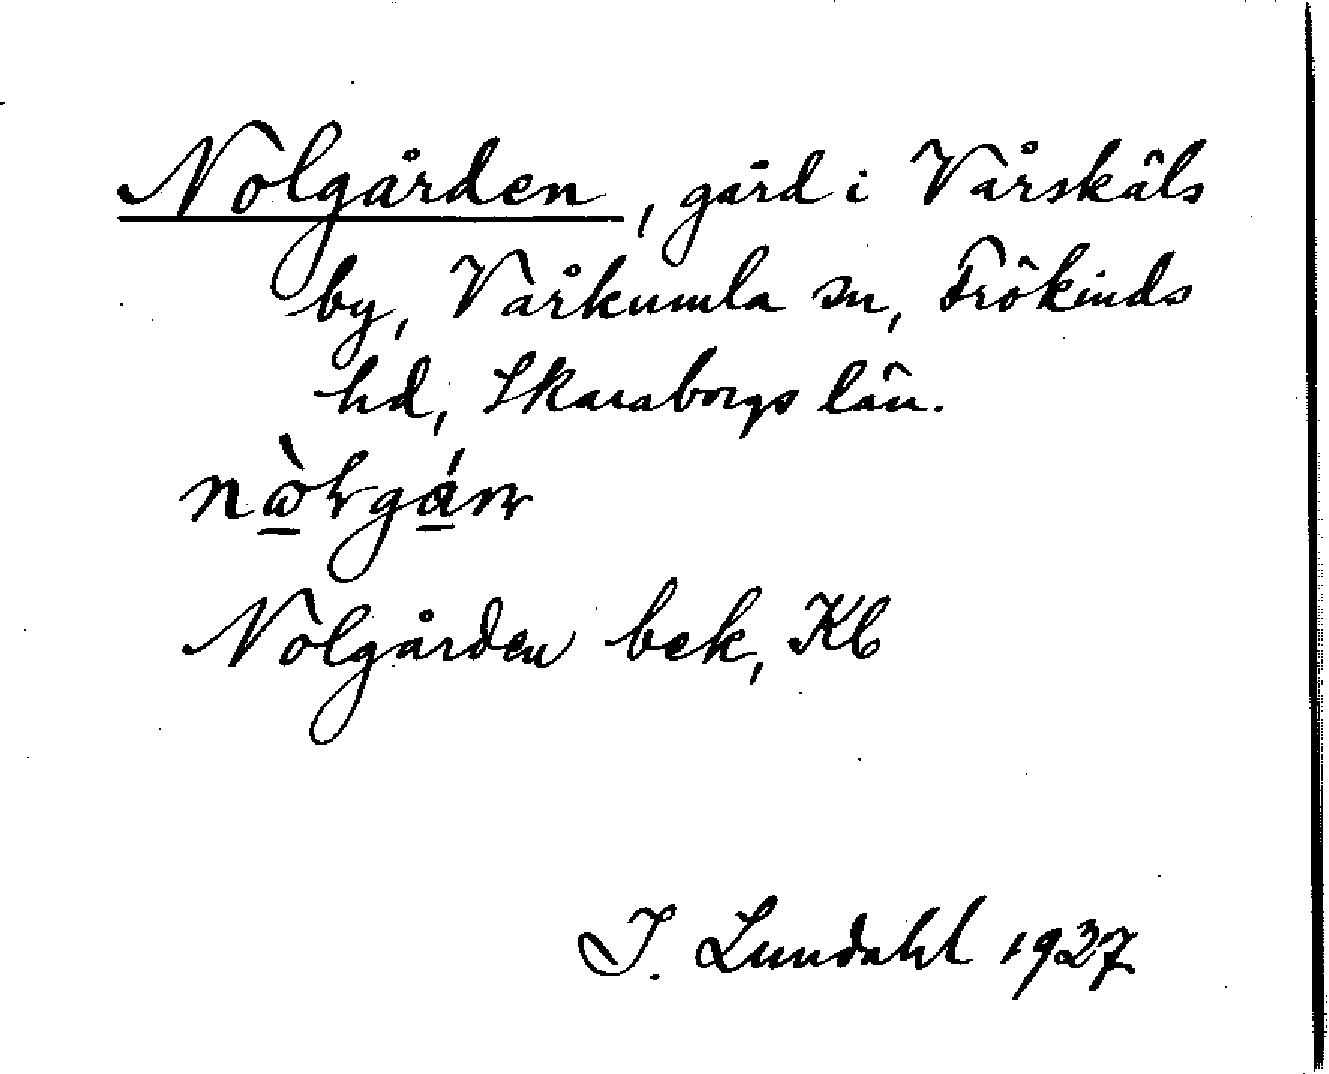 Nolgården, gård i Vårskäls
by, Vårkumla sn, Frökinds
hd, Skaraborgs län.
Nolgården bek, Kb
I. Lundahl 1927